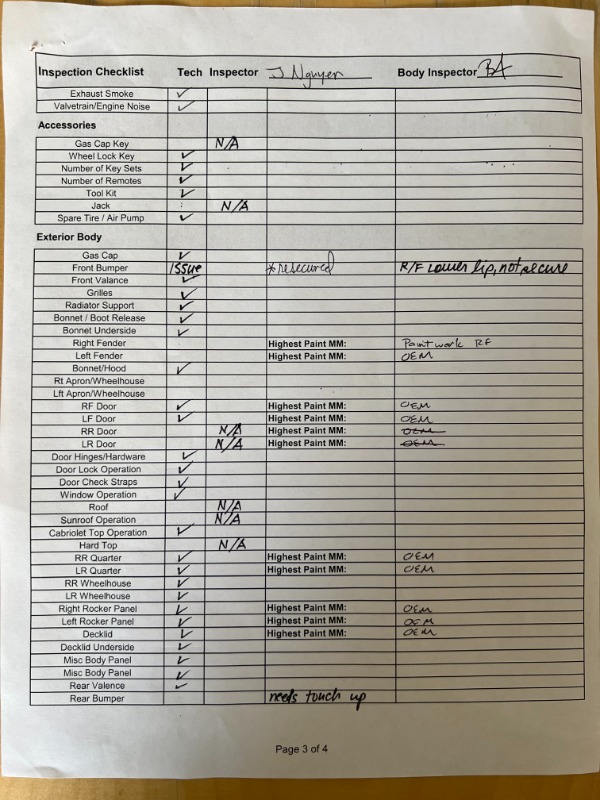 Inspection Checklist Tech Inspector J Nguyen Body Inspector BA
Exhaust Smoke ✓
Valvetrain/Engine Noise ✓
Accessories
Gas Cap Key N/A
Wheel Lock Key ✓
Number of Key Sets ✓
Number of Remotes ✓
Tool Kit ✓
Jack N/A
Spare Tire / Air Pump ✓
Exterior Body
Gas Cap ✓
Front Bumper ISSUE *resecured R/F Lower lip, not secure
Front Valance ✓
Grilles ✓
Radiator Support ✓
Bonnet / Boot Release ✓
Bonnet Underside ✓
Right Fender Highest Paint MM: Paintwork RF
Left Fender Highest Paint MM: OEM
Bonnet/Hood ✓
Rt Apron/Wheelhouse
Lft Apron/Wheelhouse
RF Door ✓ Highest Paint MM: OEM
LF Door ✓ Highest Paint MM: OEM
RR Door N/A Highest Paint MM: OEM
LR Door N/A Highest Paint MM: OEM
Door Hinges/Hardware ✓
Door Lock Operation ✓
Door Check Straps ✓
Window Operation ✓
Roof N/A
Sunroof Operation N/A
Cabriolet Top Operation ✓
Hard Top N/A
RR Quarter ✓ Highest Paint MM: OEM
LR Quarter ✓ Highest Paint MM: OEM
RR Wheelhouse ✓
LR Wheelhouse ✓
Right Rocker Panel ✓ Highest Paint MM: OEM
Left Rocker Panel ✓ Highest Paint MM: OEM
Decklid ✓ Highest Paint MM: OEM
Decklid Underside ✓
Misc Body Panel ✓
Misc Body Panel ✓
Rear Valence ✓
Rear Bumper needs touch up
Page 3 of 4